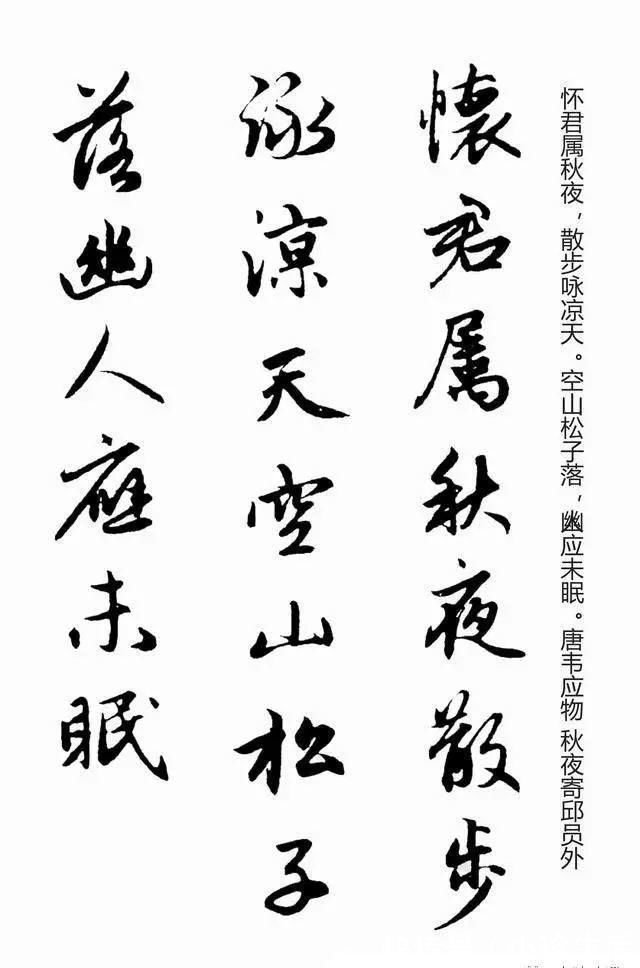 怀君属秋夜，散步咏凉天。空山松子落，幽人应未眠。唐韦应物 秋夜寄邱员外
懷君属秋夜散步
詠涼天空山松子
落幽人應未眠